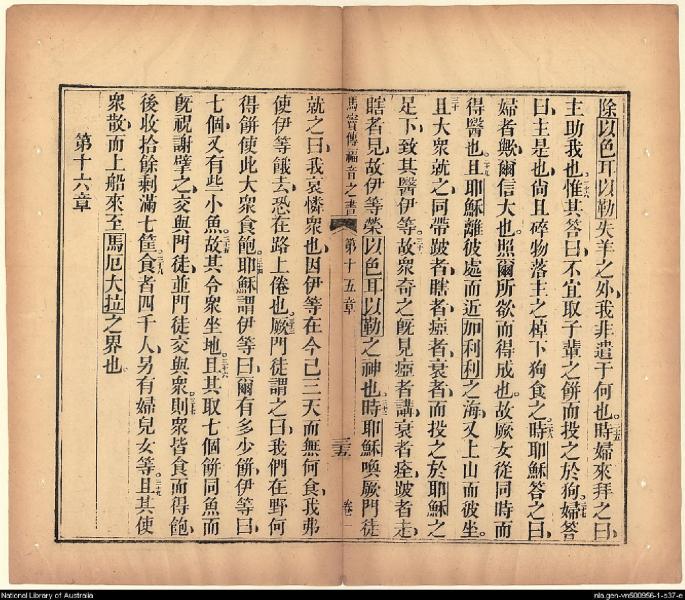 除以色耳以勒失羊之外我非遣于何也時婦來拜之曰
主助我也惟其答曰不宜取子輩之餅而投之於狗婦答
曰主是也尙且碎物落主之棹下狗食之時耶穌答之曰
婦者歟爾信大也照爾所欲而得成也故厥女從同時而
得醫也且耶穌離彼處而近加利利之海又上山而彼坐
且大衆就之同帶跛者瞎者瘂者衰者而投之於耶穌之
足下致其醫伊等故衆奇之旣見瘂者講衰者痊跛者走
瞎者見故伊等榮以色耳以勒之神也時耶穌喚厥門徒
馬竇傳福音之書 第十五章 三五 卷一
就之曰我哀憐衆也因伊等在今已三天而無何食我弗
使伊等餓去恐在路上倦也厥門徒謂之曰我們在野何
得餅使此大衆食飽耶穌謂伊等曰爾有多少餅伊等曰
七個又有些小魚故其令衆坐地且其取七個餅同魚而
旣祝謝擘之交與門徒並門徒交與衆則衆皆食而得飽
後收拾餘剩滿七筐食者四千人另有婦兒女等且其使
衆散而上船來至馬厄大拉之界也
第十六章
National Library of Australia
nla.gen-vn500956-1-s37-e